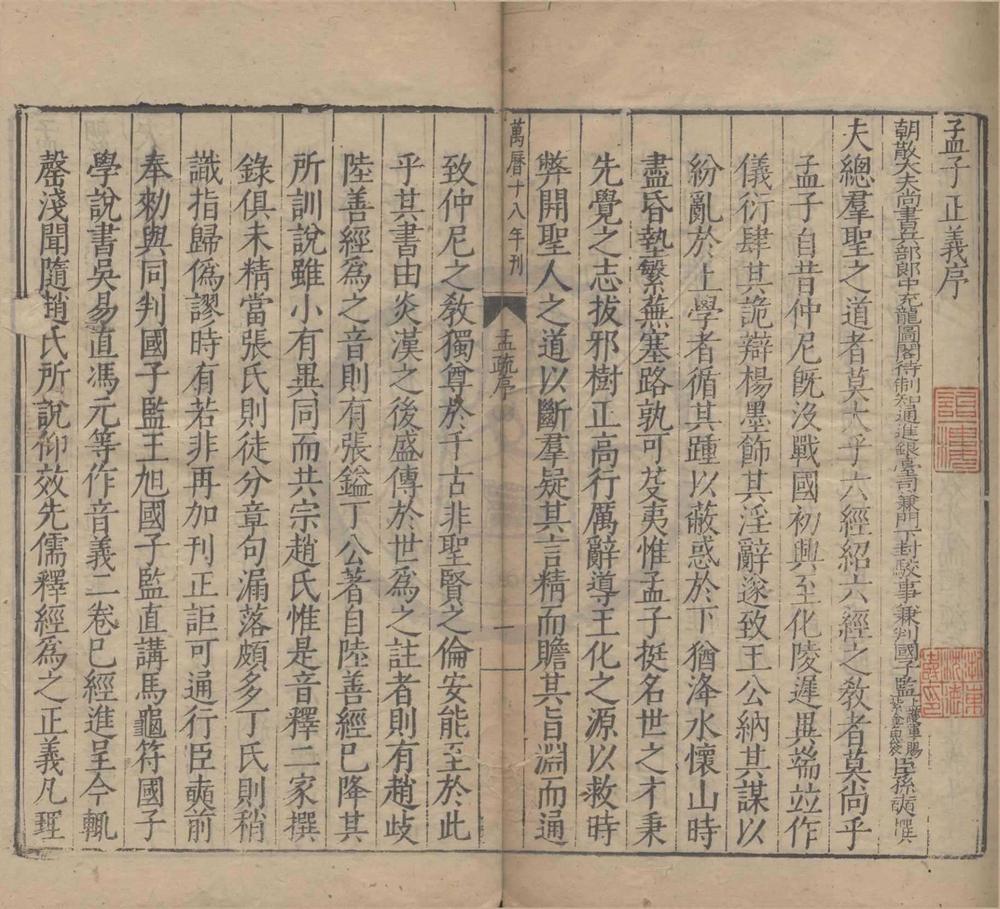 孟子正義序
朝散大夫尚書兵部郎中充龍圖閣待制知通進銀臺司兼門下封駁事兼判國子監上護軍賜紫金魚袋臣孫奭撰
夫總羣聖之道者莫大乎六經紹六經之敎者莫尚乎
孟子自昔仲尼旣沒戰國初興至化陵遲異端竝作
儀衍肆其詭辯楊墨飾其淫辭遂致王公納其謀以
紛亂於上學者循其踵以蔽惑於下猶洚水懷山時
盡昏墊繁蕪塞路孰可芟夷惟孟子挺名世之才秉
先覺之志拔邪樹正高行厲辭導王化之源以救時
弊開聖人之道以斷羣疑其言精而贍其旨淵而通
萬曆十八年刊
孟疏序
一
致仲尼之敎獨尊於千古非聖賢之倫安能至於此
乎其書由炎漢之後盛傳於世爲之註者則有趙歧
陸善經爲之音則有張鎰丁公著自陸善經已降其
所訓說雖小有異同而共宗趙氏惟是音釋二家撰
錄俱未精當張氏則徒分章句漏落頗多丁氏則稍
識指歸僞謬時有若非再加刊正詎可通行臣奭前
奉勑與同判國子監王旭國子監直講馬龜符國子
學說書吳易直馮元等作音義二卷已經進呈今輒
罄淺聞隨趙氏所說仰效先儒釋經爲之正義凡理